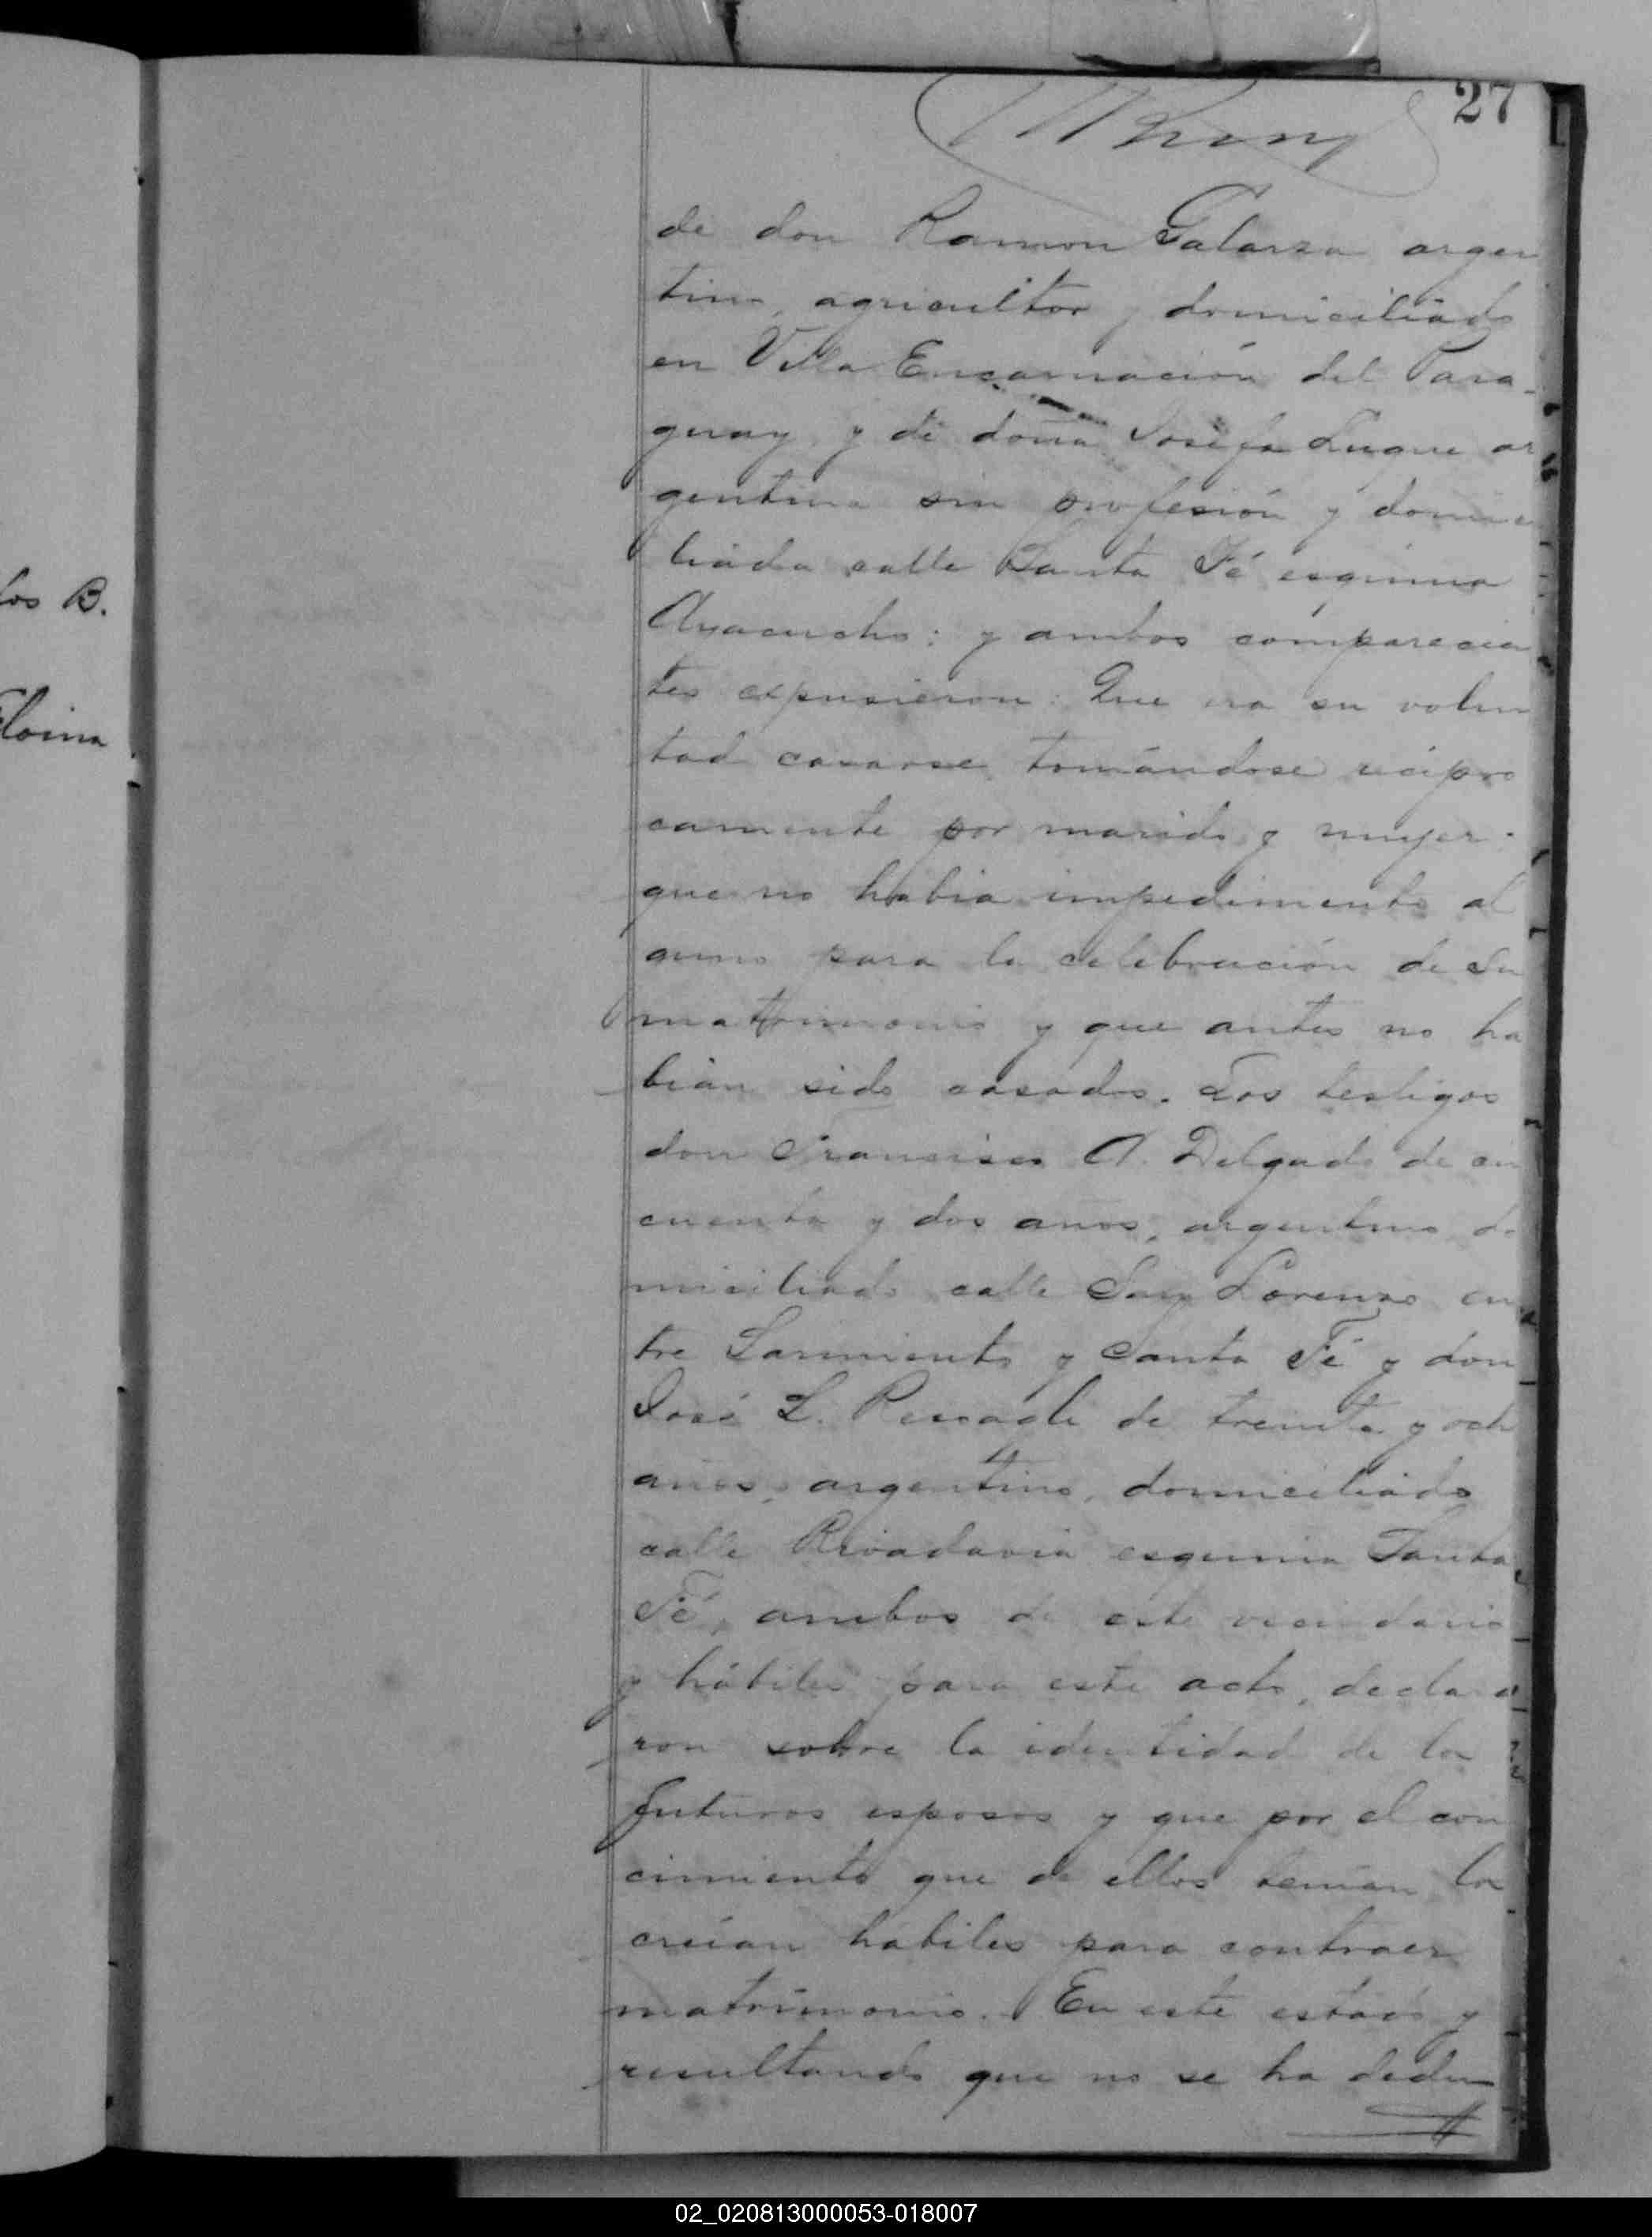 27
los B.
Eloina
de don Ramon Galarza argen
tino, agricultor y domiciliado
en Villa Encarnación del Para-
guay y de doña Josefa Luque ar
gentina sin profesión y domici
liada calle Santa Fé esquina
Ayacucho: y ambos comparecien
tes expusieron: Que era su volun
tad casarse tomándose recipro
camente por marido y mujer.
que no habia impedimento al
guno para la celebración de su
matrimonio y que antes no ha
bian sido casados. Los testigos
don Francisco A. Delgado de cin
cuenta y dos años, argentino do
miciliado calle San Lorenzo en
tre Sarmiento y Santa Fé y don
José L. de treinta y ocho
años, argentino, domiciliado
calle Rivadavia esquina Santa
Fé, ambos de este vecindario
y hábiles para este acto, declara
ron sobre la identidad de los
futuros esposos y que por el cono
cimiento que de ellos tenian los
creían habiles para contraer
matrimonio. En este estado y
resultando que no se ha dedu
02_020813000053-018007